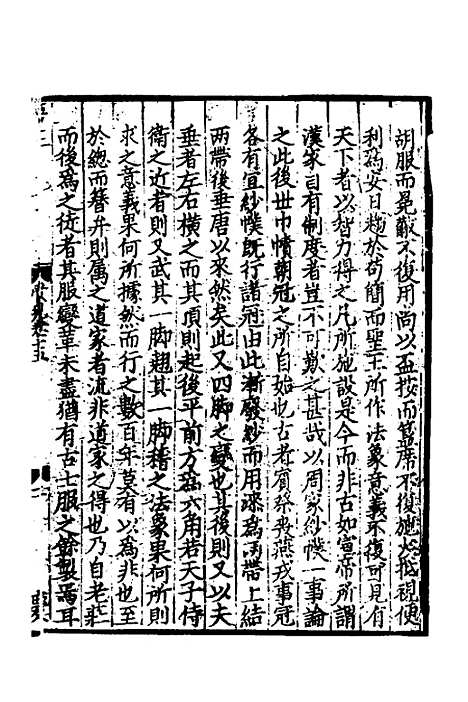 胡服而冕黻不復用尚以盃按而簋席不復施火抵視便
利為安日趨於苟簡而聖王所作法象意義不復可見有
天下者以智力得之凡所施設是今而非古如宣帝所謂
漢家自有制度者豈不可歎之甚哉以周家紗幞一事論
之此後世巾幘朝冠之所自始也古者賓祭喪燕戎事冠
各有宜紗幞既行諸冠由此漸廢紗而用漆為兩帶上結
兩帶後垂唐以來然矣此又四脚之變也其後則又以夫
垂者左右橫之而其頂則起後平前方為六角若天子侍
衛之近者則又武其一脚翹其一脚稽之法象果何所則
求之意義果何所據然而行之數百年莫有以為非也至
於總而簪弁則属之道家者流非道家之得也乃自老莊
而後為之徒者其服變革未盡猶有古士服之餘製焉耳